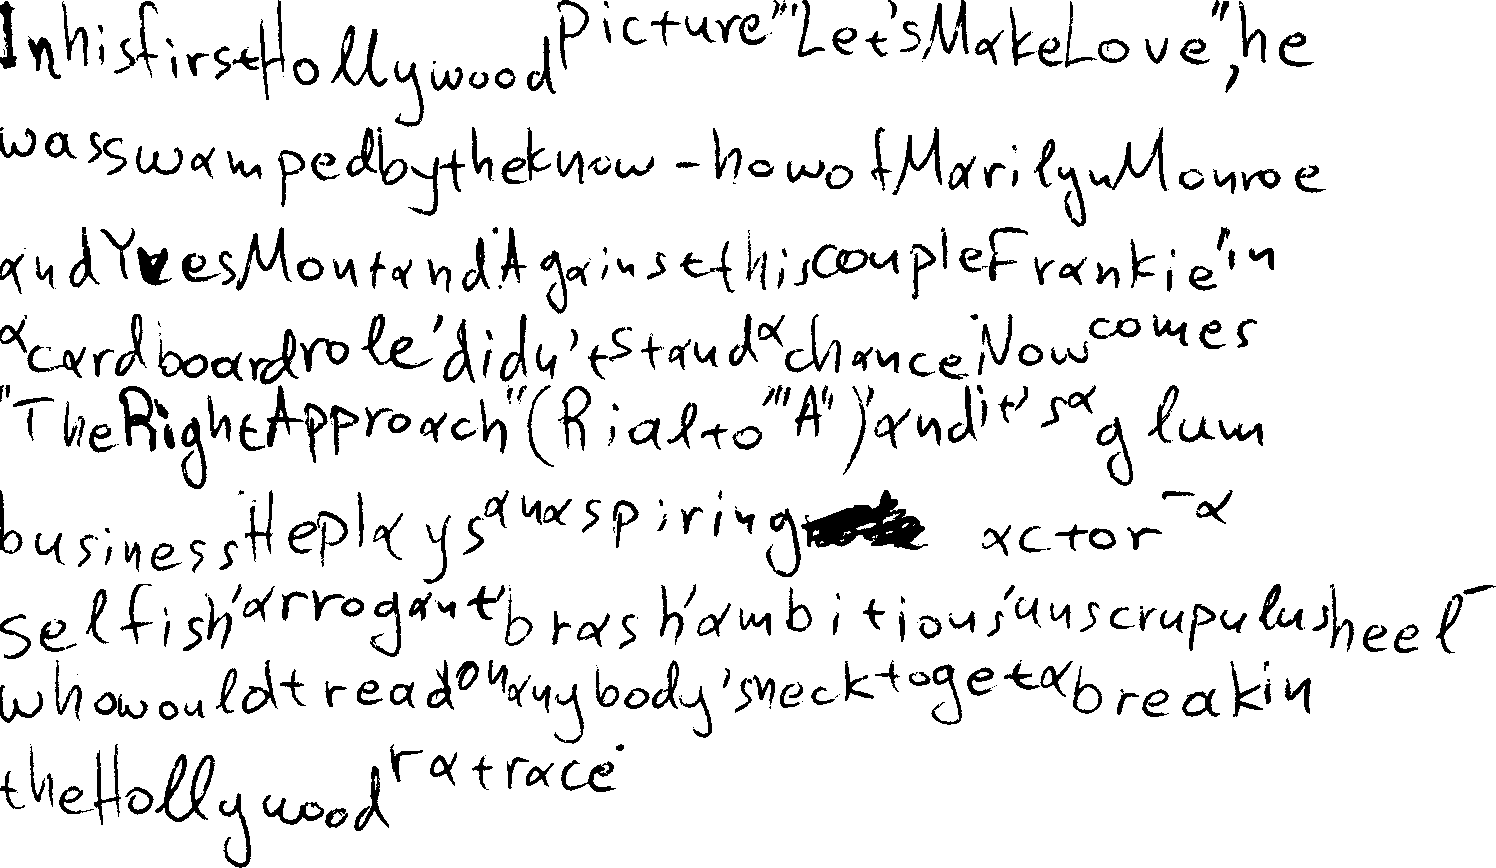 In his first Hollywood picture, "Let's Make Love", he
was swamped by the know-how of Marilyn Monroe
and Yves Montand. Against this couple Frankie, in
a cardboard role, didn't stand a chance. Now comes
"The Right Approach" (Rialto, "A"), and it's a glum
business. He plays an aspiring actor - a
selfish, arrogant, brash, ambitious, unscrupulus heel -
who would tread on anybody's neck to get a break in
the Hollywood rat race.